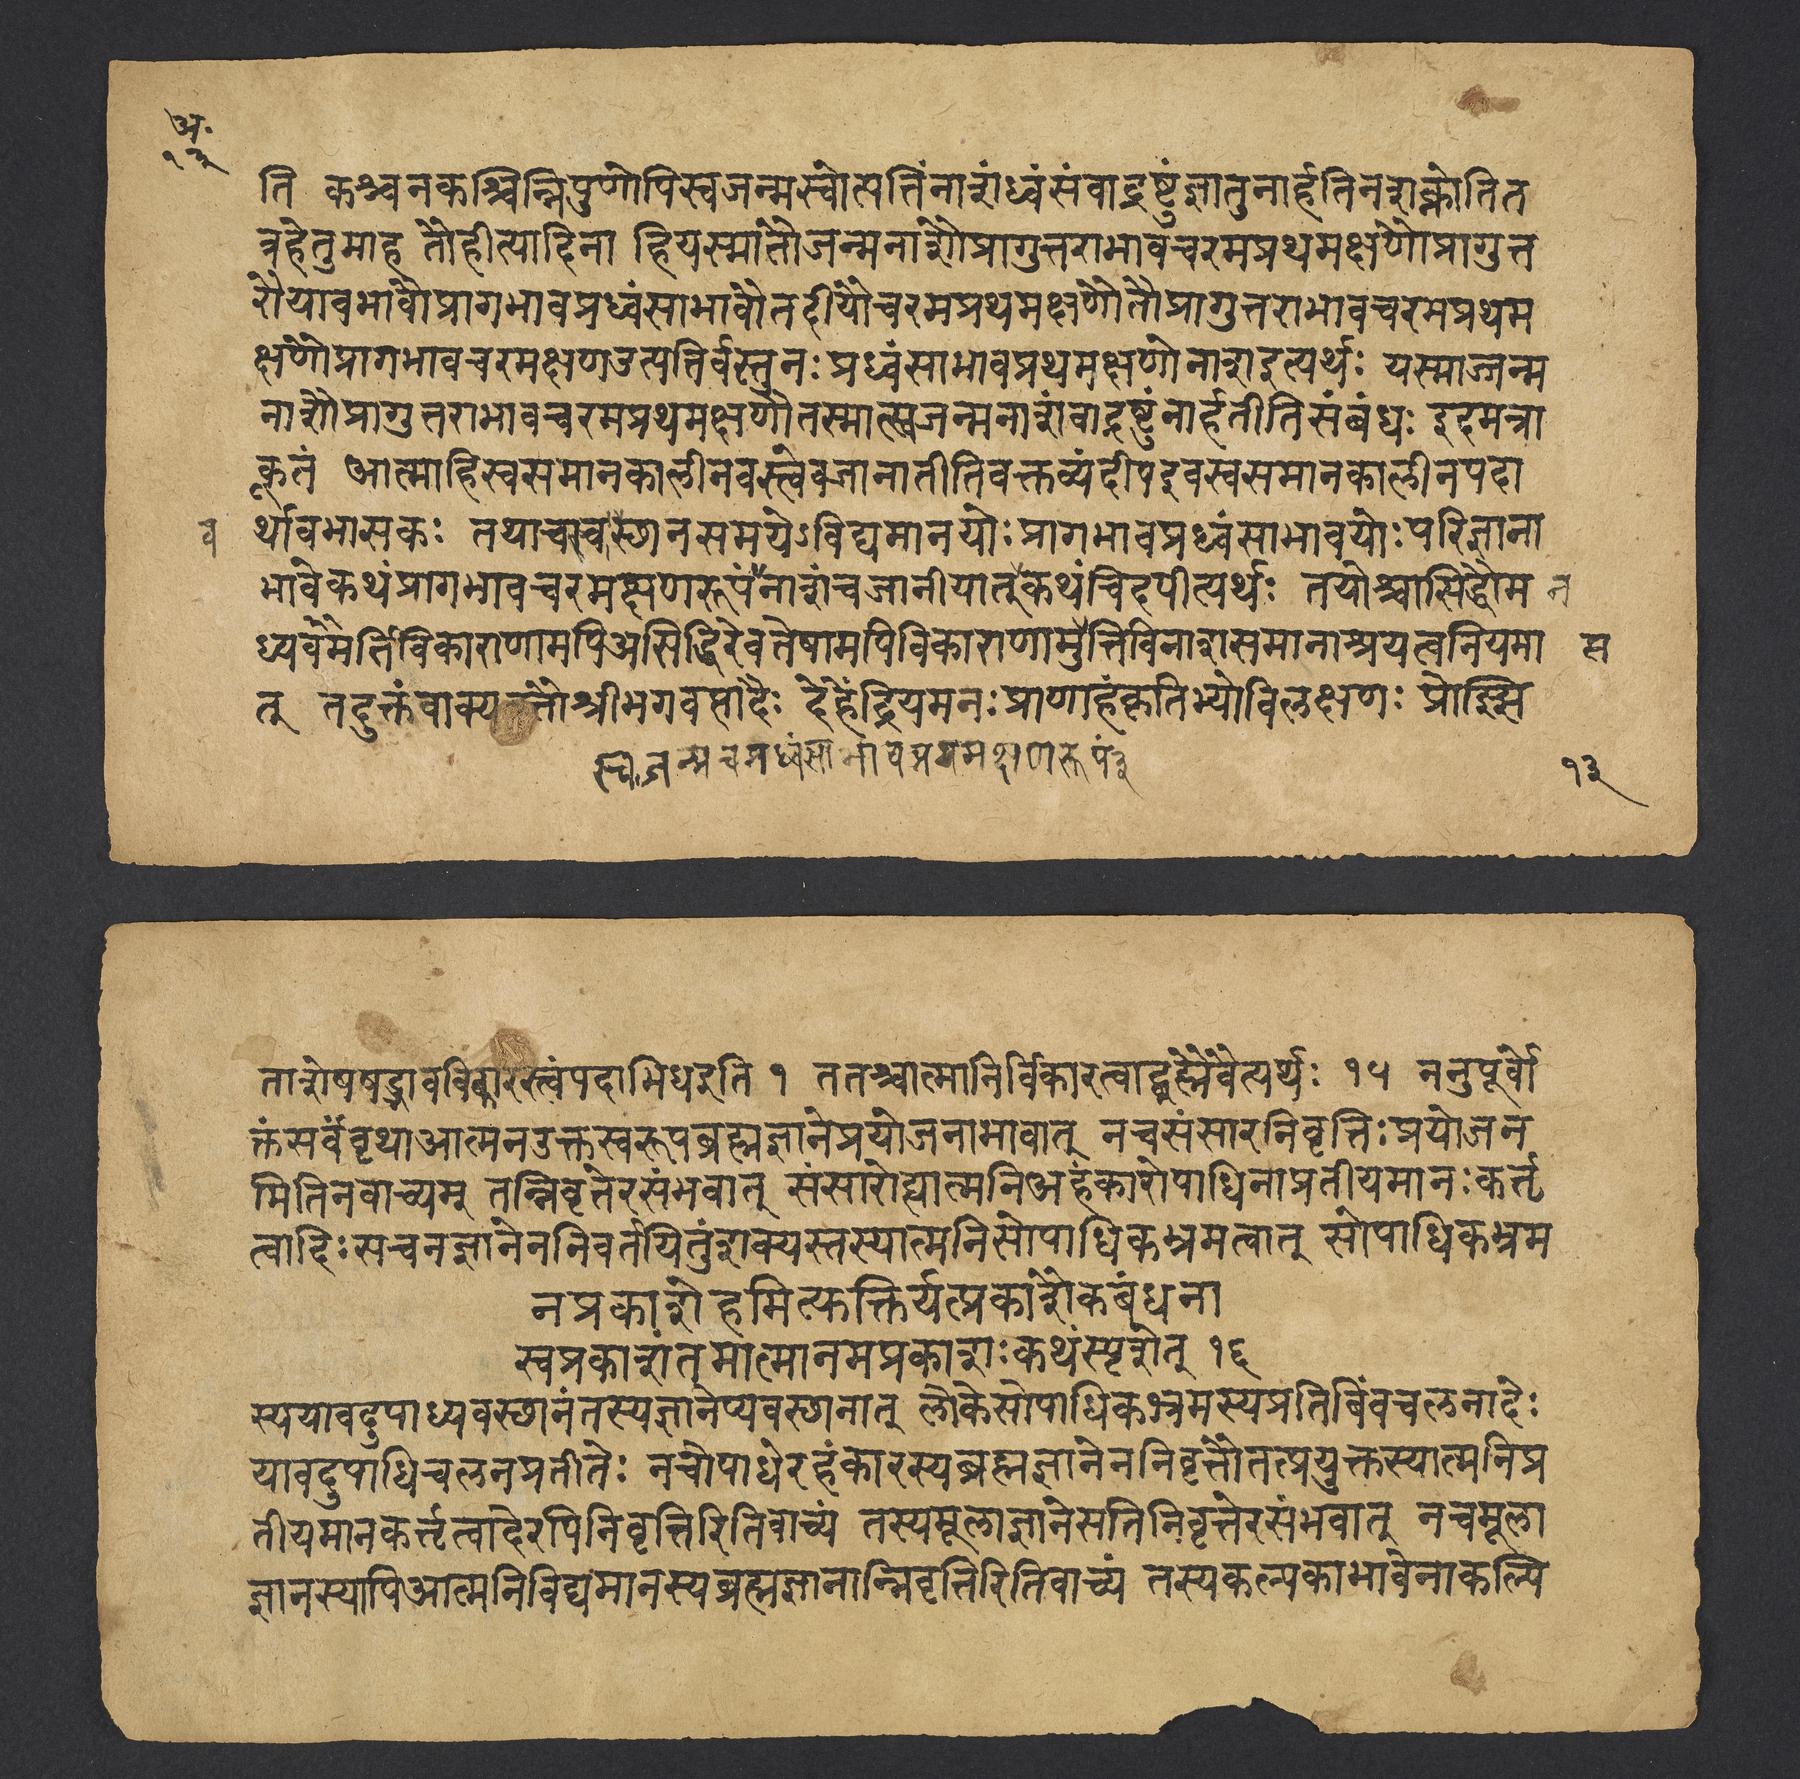 अ॰
१३
ति कश्चनकश्चिन्निपुणोपिस्वजन्मस्वोत्पत्तिंनाशंध्वंसंवाद्रष्टुंज्ञातुनार्हतिनशक्नोतित
त्रहेतुमाह तौहीत्यादिना हियस्मात्तौजन्मनाशौप्रागुत्तराभावचरमप्रथमक्षणौप्रागुत्त
रौयावभावौप्रागभावप्रध्वंसाभावौतदीयौचरमप्रथमक्षणौतौप्रागुत्तराभावचरमप्रथम
क्षणौप्रागभावचरमक्षणउत्पत्तिर्वस्तुनः प्रध्वंसाभावप्रथमक्षणोनाशइत्यर्थः यस्माज्जन्म
नाशौप्रागुत्तराभावचरमप्रथमक्षणौतस्मात्स्वजन्मनाशंवाद्रष्टुंनार्हतीतिसंबंधः इदमत्रा
कूतं आत्माहिस्वसमानकालीनवस्त्वेवजानातीतिवक्तव्यंदीपइवस्वसमानकालीनपदा
र्थावभासकः तथाचस्वस्छानसमयेऽविद्यमानयोःप्रागभावप्रध्वंसाभावयोःपरिज्ञाना
व
भावेकथंप्रागभावचरमक्षणरूपंनाशंचजानीयात्कथंचिदपीत्यर्थः तयोश्चासिद्धौम
न
ध्यवर्मर्तिविकाराणामपिअसिद्धिरेवतेषामपिविकाराणामुत्तिविनाशसमानाश्रयत्वनियमा
स
त् तदुक्तंवाक्यवृत्तौश्रीभगवत्पादैः देहेंद्रियमनःप्राणाहंकृतिभ्योविलक्षणः प्रोज्झि
स्वजन्मचप्रध्वंसाभावप्रथमक्षणरूपं३
१३
ताशेषषड्भावविकारस्त्वंपदाभिधइति १ ततश्चात्मानिर्विकारत्वाद्ब्रह्मैवेत्यर्थः १५ ननुपूर्वो
क्तंसर्वंवृथाआत्मनउक्तस्वरूपब्रह्मज्ञानेप्रयोजनाभावात् नचसंसारनिवृत्तिःप्रयोजन
मितिनवाच्यम् तन्निवृत्तेरसंभवात् संसारोह्यात्मनिअहंकारोपाधिनाप्रतीयमानःकर्त्तृ
त्वादिःसचनज्ञानेननिवर्तयितुंशक्यस्तस्यात्मनिसोपाधिकभ्रमत्वात् सोपाधिकभ्रम
नप्रकाशोहमित्कक्तिर्यत्प्रकाशैकबंधना
स्वप्रकाशंतमात्मानमप्रकाशःकथंस्पृशेत् १६
स्ययावदुपाध्यवस्छानंतस्यज्ञानेप्यवस्छानात् लोकेसोपाधिकभ्रमस्यप्रतिबिंवचलनादेः
यावदुपाधिचलनप्रतीतेः नचोपाधेरहंकारस्यब्रह्मज्ञानेननिवृत्तौतत्प्रयुक्तस्यात्मनिप्र
तीयमानकर्त्तृत्वादेरपिनिवृत्तिरितिवाच्यं तस्यमूलाज्ञानेसतिनिवृत्तेरसंभवात् नचमूला
ज्ञानस्यापिआत्मनिविद्यमानस्यब्रह्मज्ञानान्निवृत्तिरितिवाच्यं तस्यकल्पकाभावेनाकल्पि